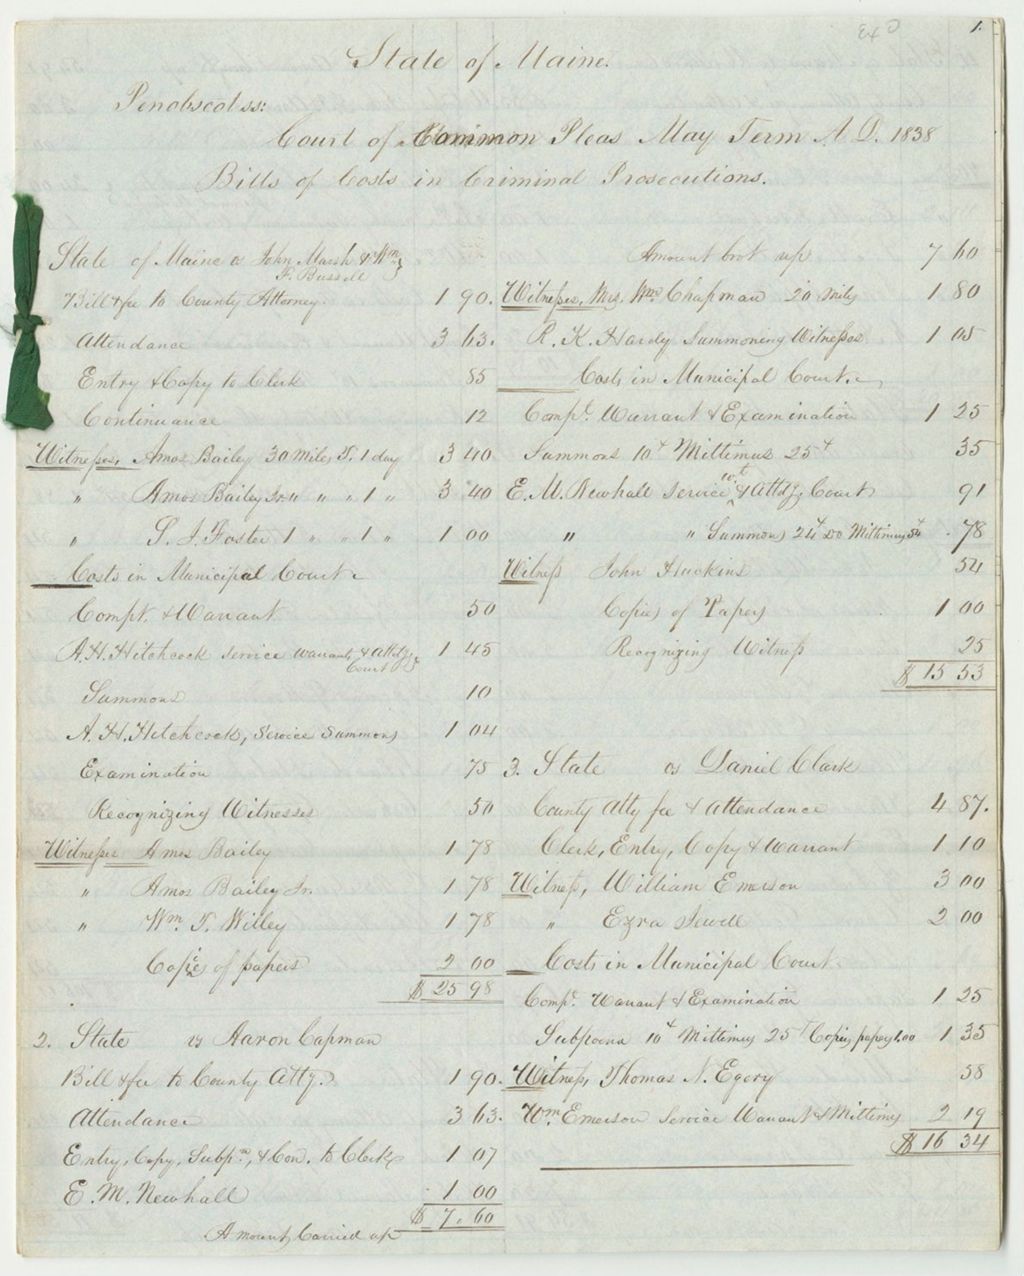 1.
State of Maine.
Penobscot ss:
Court of Common Pleas May Term A.D. 1838
Bills of Costs in Criminal Prosecutions.
State of Maine vs John Marsh & Wm
F. Bussell
Bill & fee to County Attorney. 1 90.
Attendance 3 63.
Entry & Copy to Clerk 85
Continuance 12
Witnesses, Amos Bailey 30 miles T. 1 day 3 40
" Amos Bailey Jr. " " " 1 " 3 40
" S. J. Foster 1 " " 1 " 1 00
Costs in Municipal Court.
Compt. & Warrant 50
A. H. Hitchcock service warrant & Attdg
Court 1 45
Summons 10
A. H. Hitchcock, Service Summons 1 04
Examination 75
Recognizing Witnesses 50
Witnesses Amos Bailey 1 78
" Amos Bailey Jr. 1 78
" Wm. T. Willey 1 78
Copies of papers 2 00
$ 25 98
2. State vs Aaron Capman
Bill & fee to County Atty. 1 90.
Attendance 3 63.
Entry, Copy, Subpa, & Con. to Clerk 1 07
E. M. Newhall 1 00
$ 7.60
Amount Carried up
Amount brot up 7 60
Witnesses, Mrs. Wm. Chapman 20 miles 1 80
R. K. Hardy Summoning Witnesses 1 05
Costs in Municipal Court.
Compt. Warrant & Examination 1 25
Summons 10 Mittimus 25 35
E. M. Newhall service wt & Attdg Court 91
" " Summons 24 do Mittimus 54 .78
Witness John Huckins 54
Copies of Papers 1 00
Recognizing Witness 25
$ 15 53
3. State vs Daniel Clark
County Atty fee & attendance 4 87.
Clerk, Entry, Copy & warrant 1 10
Witness, William Emerson 3 00
" Ezra Jewell 2 00
Costs in Municipal Court.
Compt. Warrant & Examination 1 25
Subpoena 10 Mittimus 25 Copies papers 1.00 1 35
Witness, Thomas N. Egery 58
Wm. Emerson service Warrant & Mittimus 2 19
$ 16 34